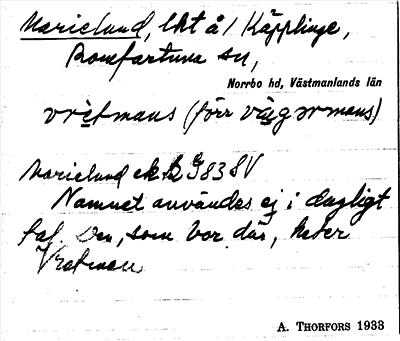 Marielund, lht å/ Käpplinge,
Romfartuna sn,
Norrbo hd, Västmanlands län
vrètmans (förr vä̀gərmans)
Marielund ek B J83 SV
Namnet användes ej i dagligt
tal. Den, som bor där, heter
Vretman
A. THORFORS 1933